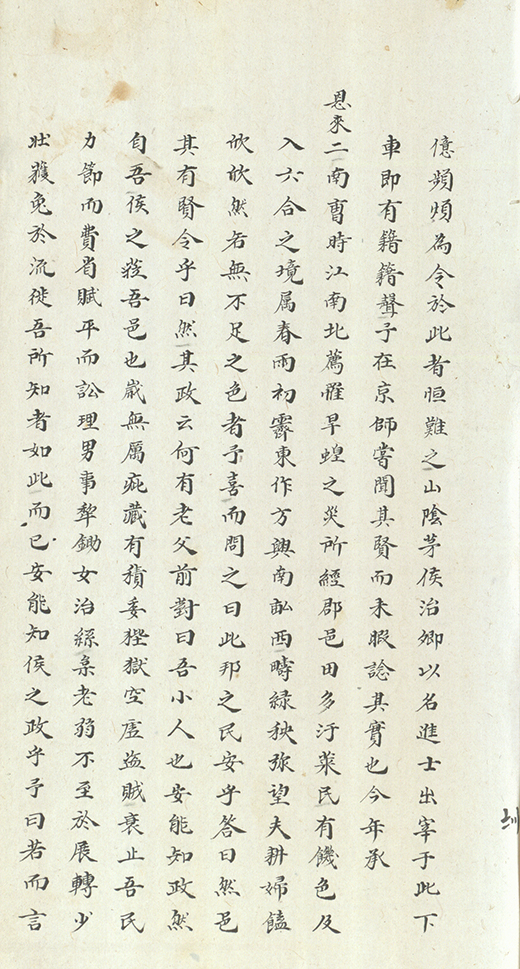 億頻煩為令於此者恒難之山陰茅侯治卿以名進士出宰于此下
車即有籍籍聲予在京師嘗聞其賢而未暇諗其實也今年承
恩來二南曹時江南北薦罹旱蝗之災所經郡邑田多汙萊民有饑色及
入六合之境属春雨初霽東作方興南畝西疇緑秧弥望夫耕婦饁
欣欣然若無不足之色者予喜而問之曰此邦之民安乎答曰然邑
其有賢令乎曰然其政云何有老父前對曰吾小人也安能知政然
自吾侯之蒞吾邑也嵗無厲疵藏有積委狴獄空虛盜賊衰止吾民
力節而費省賦平而訟理男事犂鋤女治絲枲老弱不至於展轉少
壯獲免於流徙吾所知者如此而已安能知侯之政乎予曰若而言